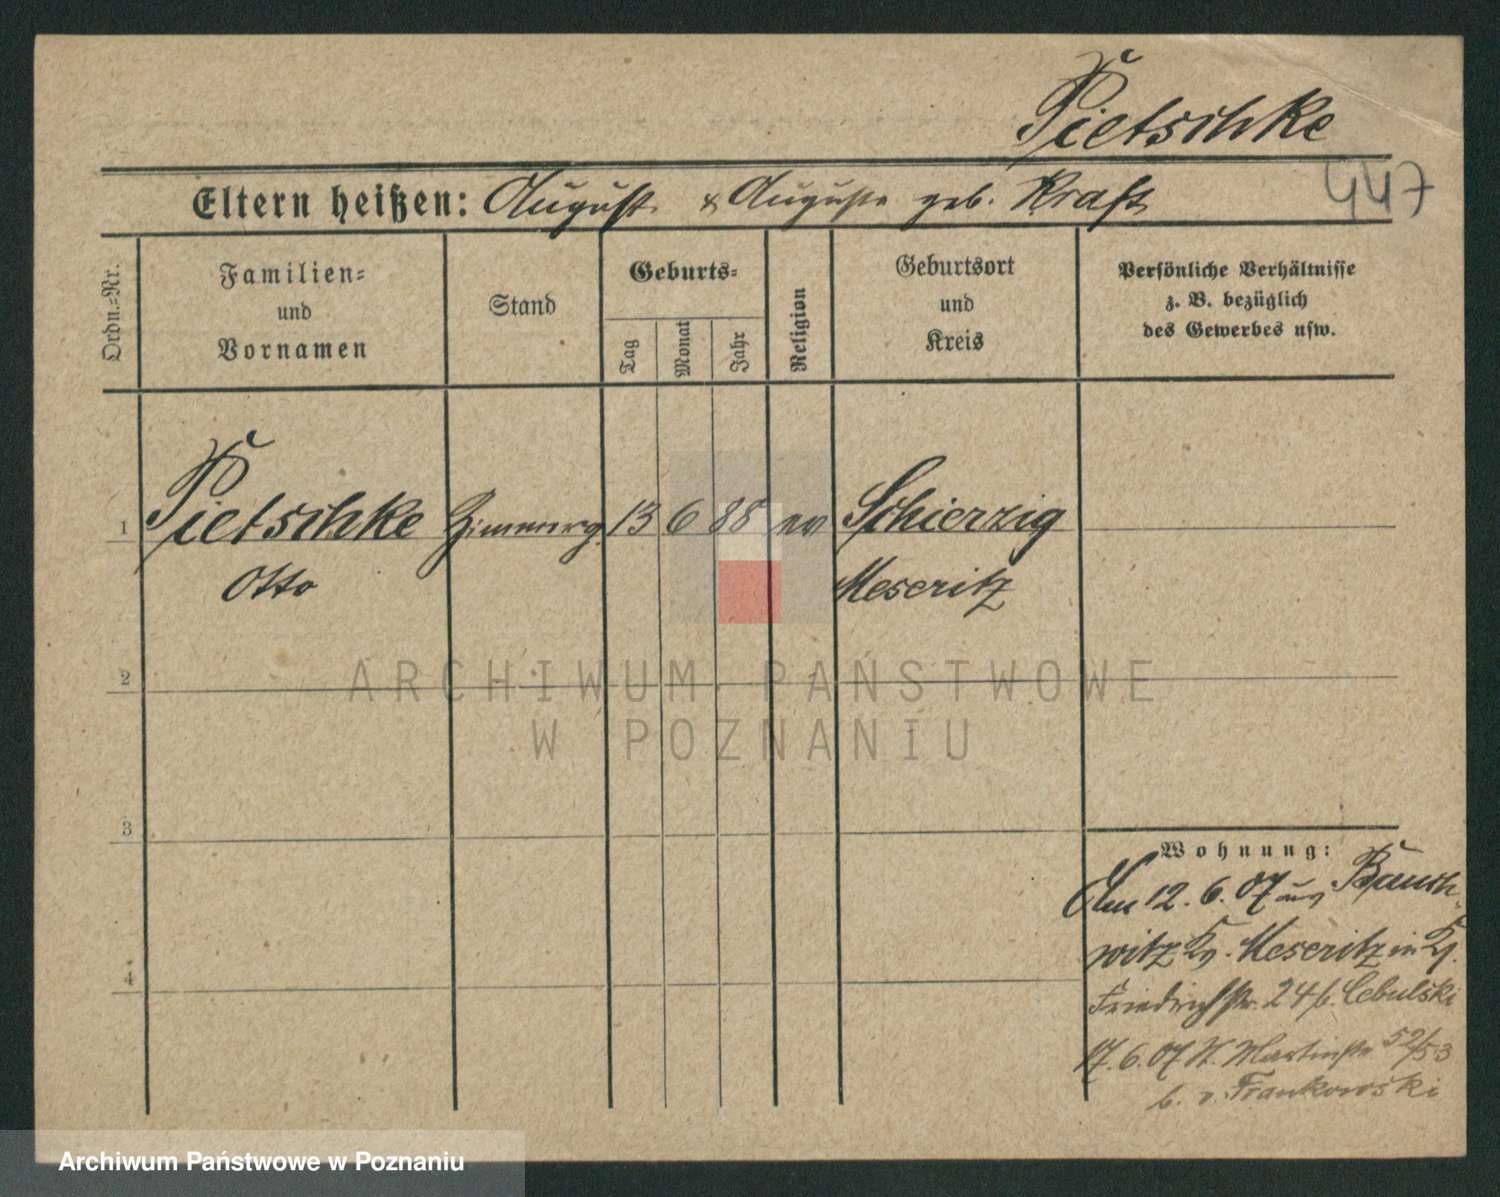 Pietschke
447
Eltern heißen: August & Auguste geb. Kraft
Ordn.=Nr.
Familien=
und
Vornamen
Stand
Geburts=
Tag
Monat
Jahr
Religion
Geburtsort
und
Kreis
Persönliche Verhältnisse
z. B. bezüglich
des Gewerbes usw.
1 Pietschke Zimmerg. 13 6 88 ev Schierzig
Otto Meseritz
2
ARCHIWUM PAŃSTWOWE
W POZNANIU
3
4
Wohnung:
Am 12. 6. 07 aus Bauch-
witz Kr. Meseritz in
Friedrichstr. 24 b. Cebulski
17. 6. 07 St. Martinstr. 52/53
b. v. Frankowski
Archiwum Państwowe w Poznaniu